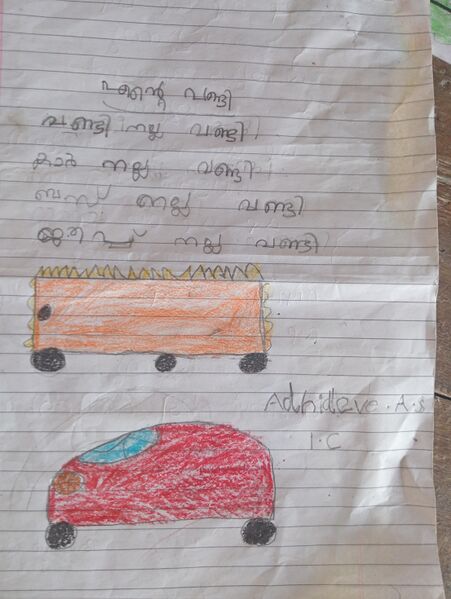 എന്റെ വണ്ടി
വണ്ടി നല്ല വണ്ടി
കാർ നല്ല വണ്ടി
ബസ്സ് നല്ല വണ്ടി
ജീപ്പ് നല്ല വണ്ടി
Adhideve.A.S
1.C